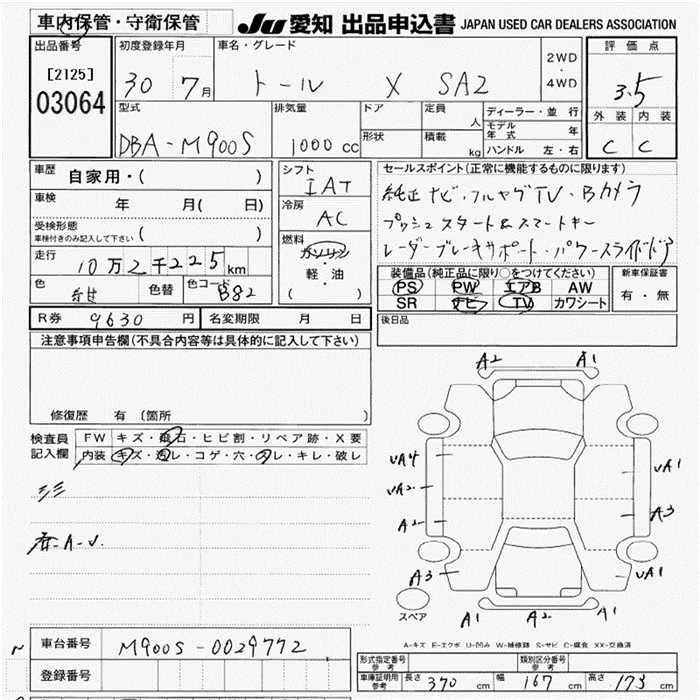 車内保管・守衛保管
JU 愛知 出品申込書 JAPAN USED CAR DEALERS ASSOCIATION
出品番号 初度登録年月 車名・グレード 2WD ・ 4WD 評価点
[2125] 03064 30 7月 トール X SA2 3.5
型式 排気量 ドア 定員 人 ディーラー・並行 外装 内装
DBA-M900S 1000cc 形状 積載 kg モデル年式 年 C C
ハンドル 左・右
車歴 自家用・( ) シフト IAT セールスポイント(正常に機能するものに限ります)
車検 年 月( 日) 冷房 AC 純正ナビ・フルセグTV・Bカメラ
受検形態 車検付きのみ記入して下さい ( ) プッシュスタート&スマートキー
走行 10万2千225km 燃料 ガソリン・軽・油 ( ) レーダーブレーキサポート・パワースライドドア
色 紺 色替 色コード B82 装備品(純正品に限り○をつけてください) 新車保証書
PS PW エアB AW 有・無
SR ナビ TV カワシート
R券 9630円 名変期限 月 日 後日品
注意事項申告欄(不具合内容等は具体的に記入して下さい)
修復歴 有 (箇所 )
検査員記入欄 FW キズ・飛石・ヒビ割・リペア跡・X要
内装 キズ・汚レ・コゲ・穴・スレ・キレ・破レ
A2 A1
UA4 UA1
UA2
A2 A3
A-U.
A3 UA1
スペア A1 A2 A1
A-キズ E-エクボ U-凹み W-補修跡 S-サビ C-腐食 XX-交換済
車台番号 M900S-0029772
登録番号
形式指定番号 参考 類別区分番号 参考
車庫証明用 参考 長さ 370cm 幅 167cm 高さ 173cm